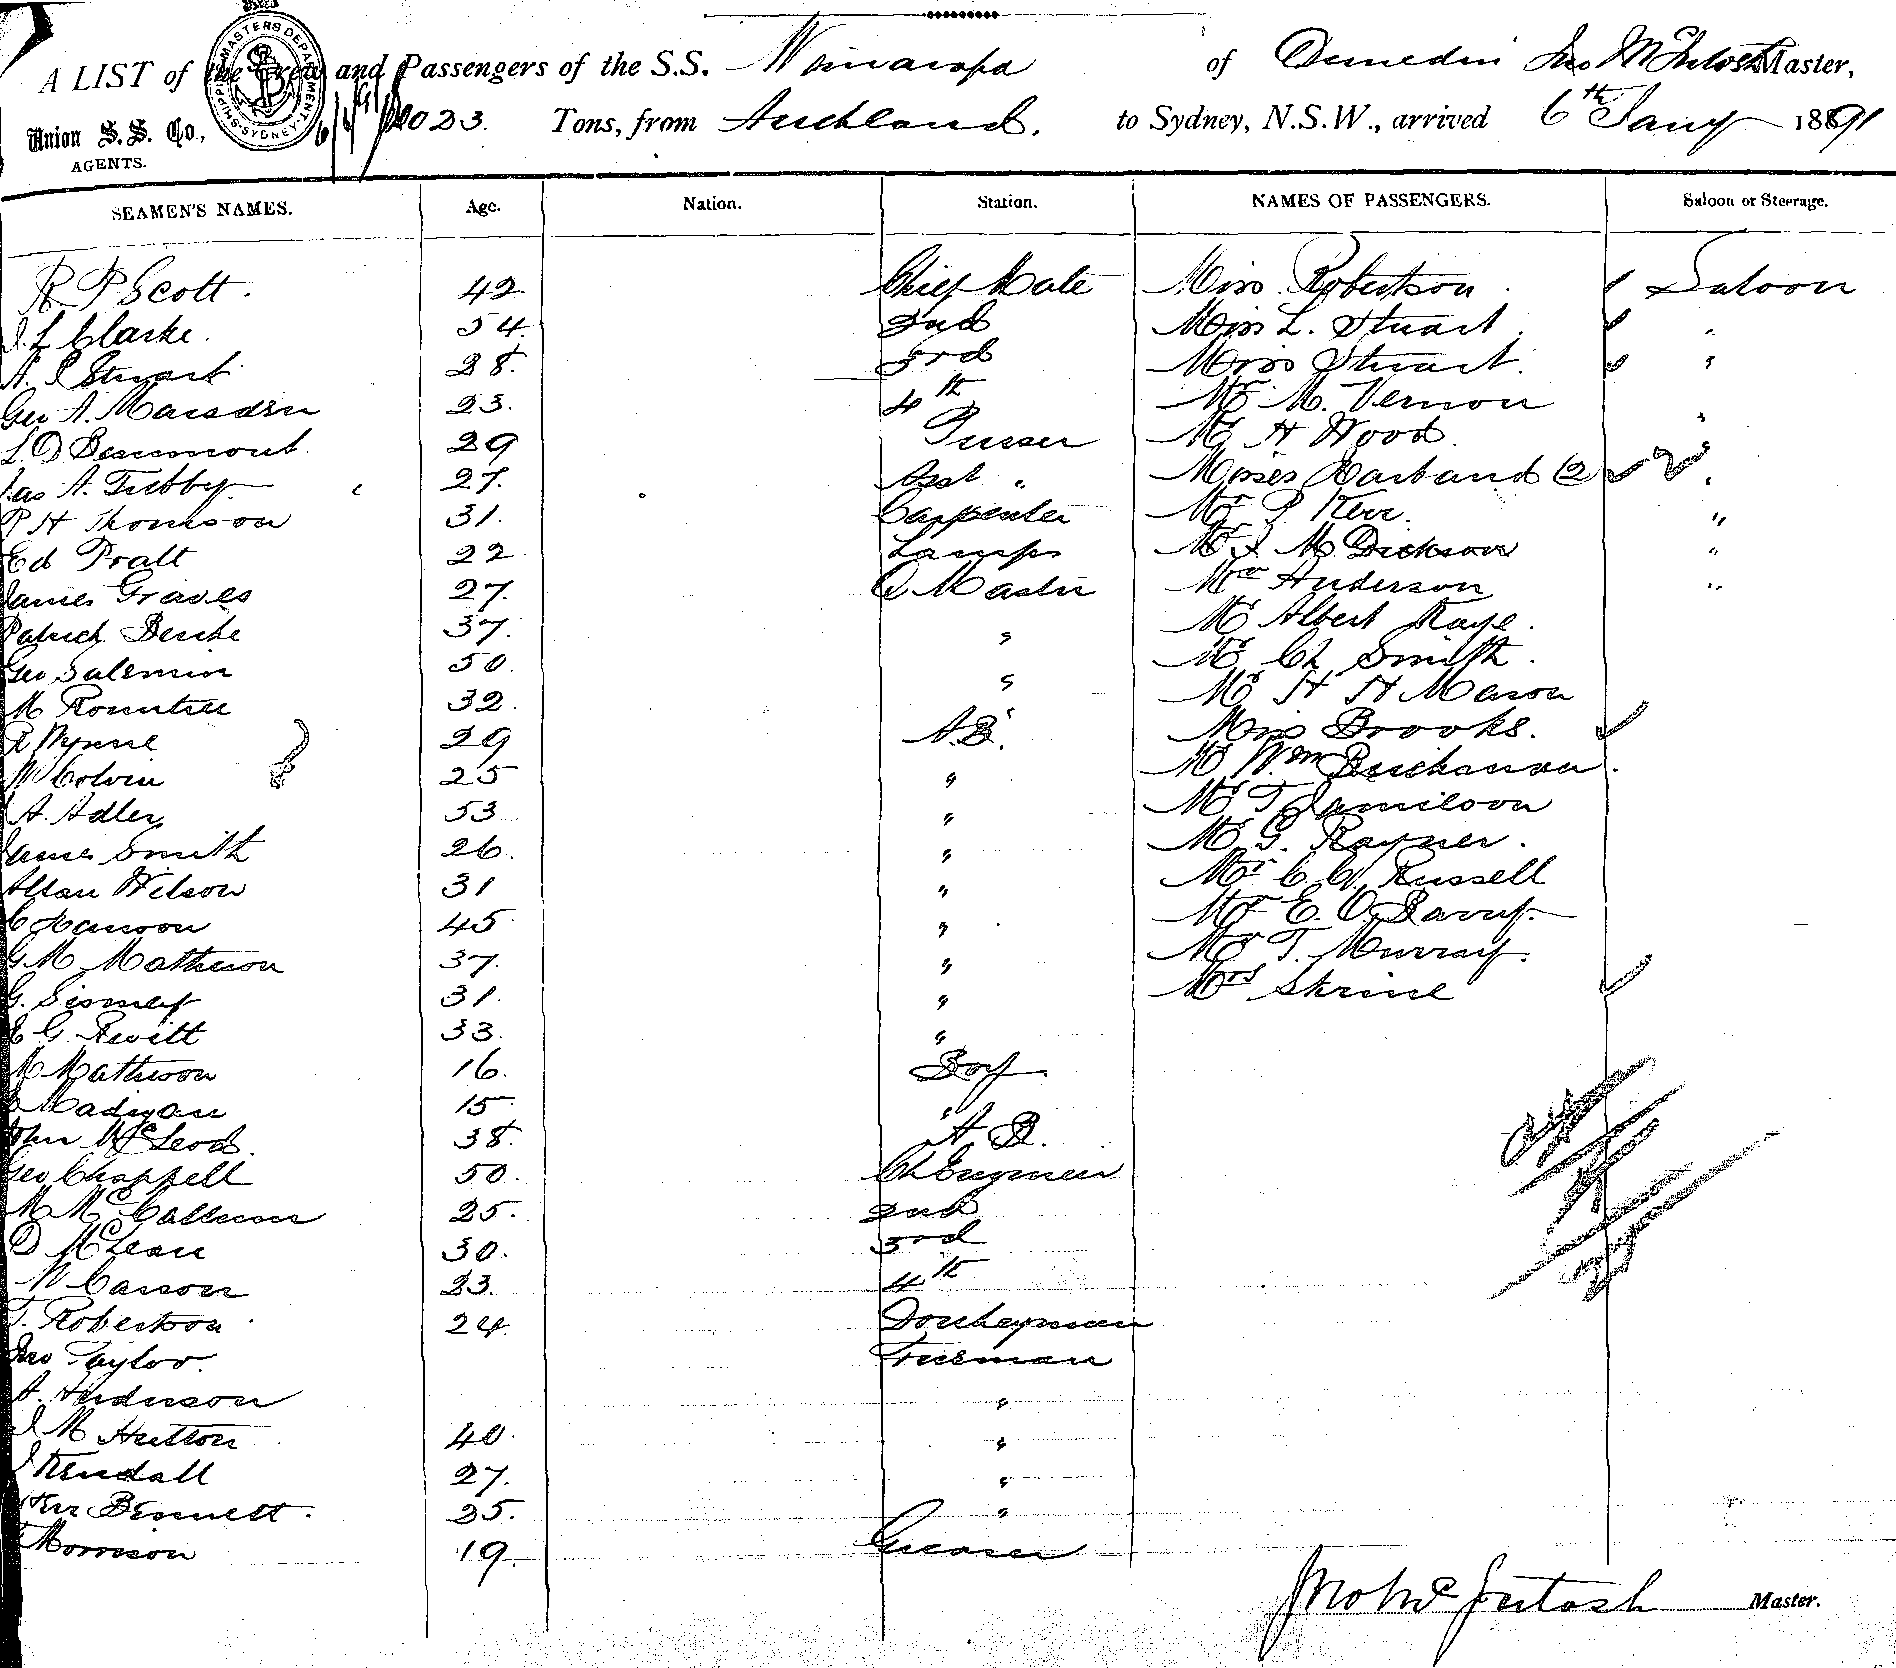 A LIST of the Crew and Passengers of the S.S. Wairarapa of Dunedin Jno McIntosh Master,
SHIPPING MASTERS DEPARTMENT SYDNEY
Union S. S. Co., 1023. Tons, from Auckland. to Sydney, N.S.W., arrived 6th Jany 1891
AGENTS.
SEAMEN'S NAMES. Age. Nation. Station. NAMES OF PASSENGERS. Saloon or Steerage.
R P Scott. 42 Chief Mate Miss Robertson Saloon
Clarke. 54 2nd Miss L. Stuart "
Stuart 28. 3rd Miss Stuart. "
Geo A. Marsden 23. 4th Mr M. Vernon
L D Beaumont. 29 Purser Mr H Wood. "
Jas A. Tibby 27. Asst " Misses Harband (2 "
P H Thomson 31. Carpenter Mr P. Kerr. "
Ed Pratt 22 Lamps Mr J. M. Dickson "
James Graves 27. Q Master Mr Anderson "
Patrick 37. " Mr Albert Kaye.
Geo Salemin 50. Mr Ch Smith.
M Rountree 32. " Mr H H Mason
R Wynne 29 A.B. Miss Brooks.
W Colvin 25 " Mr Wm Buchanan.
A. Adler 53 " Mr T Jamieson
James Smith 26. " Mr G. Rayner.
Allan Wilson 31 " Mr C W Russell
C Hanson 45 " Mr E. O.
G M Matheson 37. " Mr T. Murray.
G. Sismey 31. " Mrs Skrine
G. 33. "
M Matheson 16. Boy
Madigan 15 "
John McLeod. 38. A.B.
Geo Chappell 50. Ch Engineer
M McCallum 25. 2nd
D McLean 30. 3rd
W Carson 23. 4th
T. Robertson 24. Donkeyman
Jno Taylor. Fireman
A. Anderson "
J M Hutton 40. "
J Kendall 27. "
Bennett. 35. "
Morrison 19. Greaser
Jno McIntosh Master.